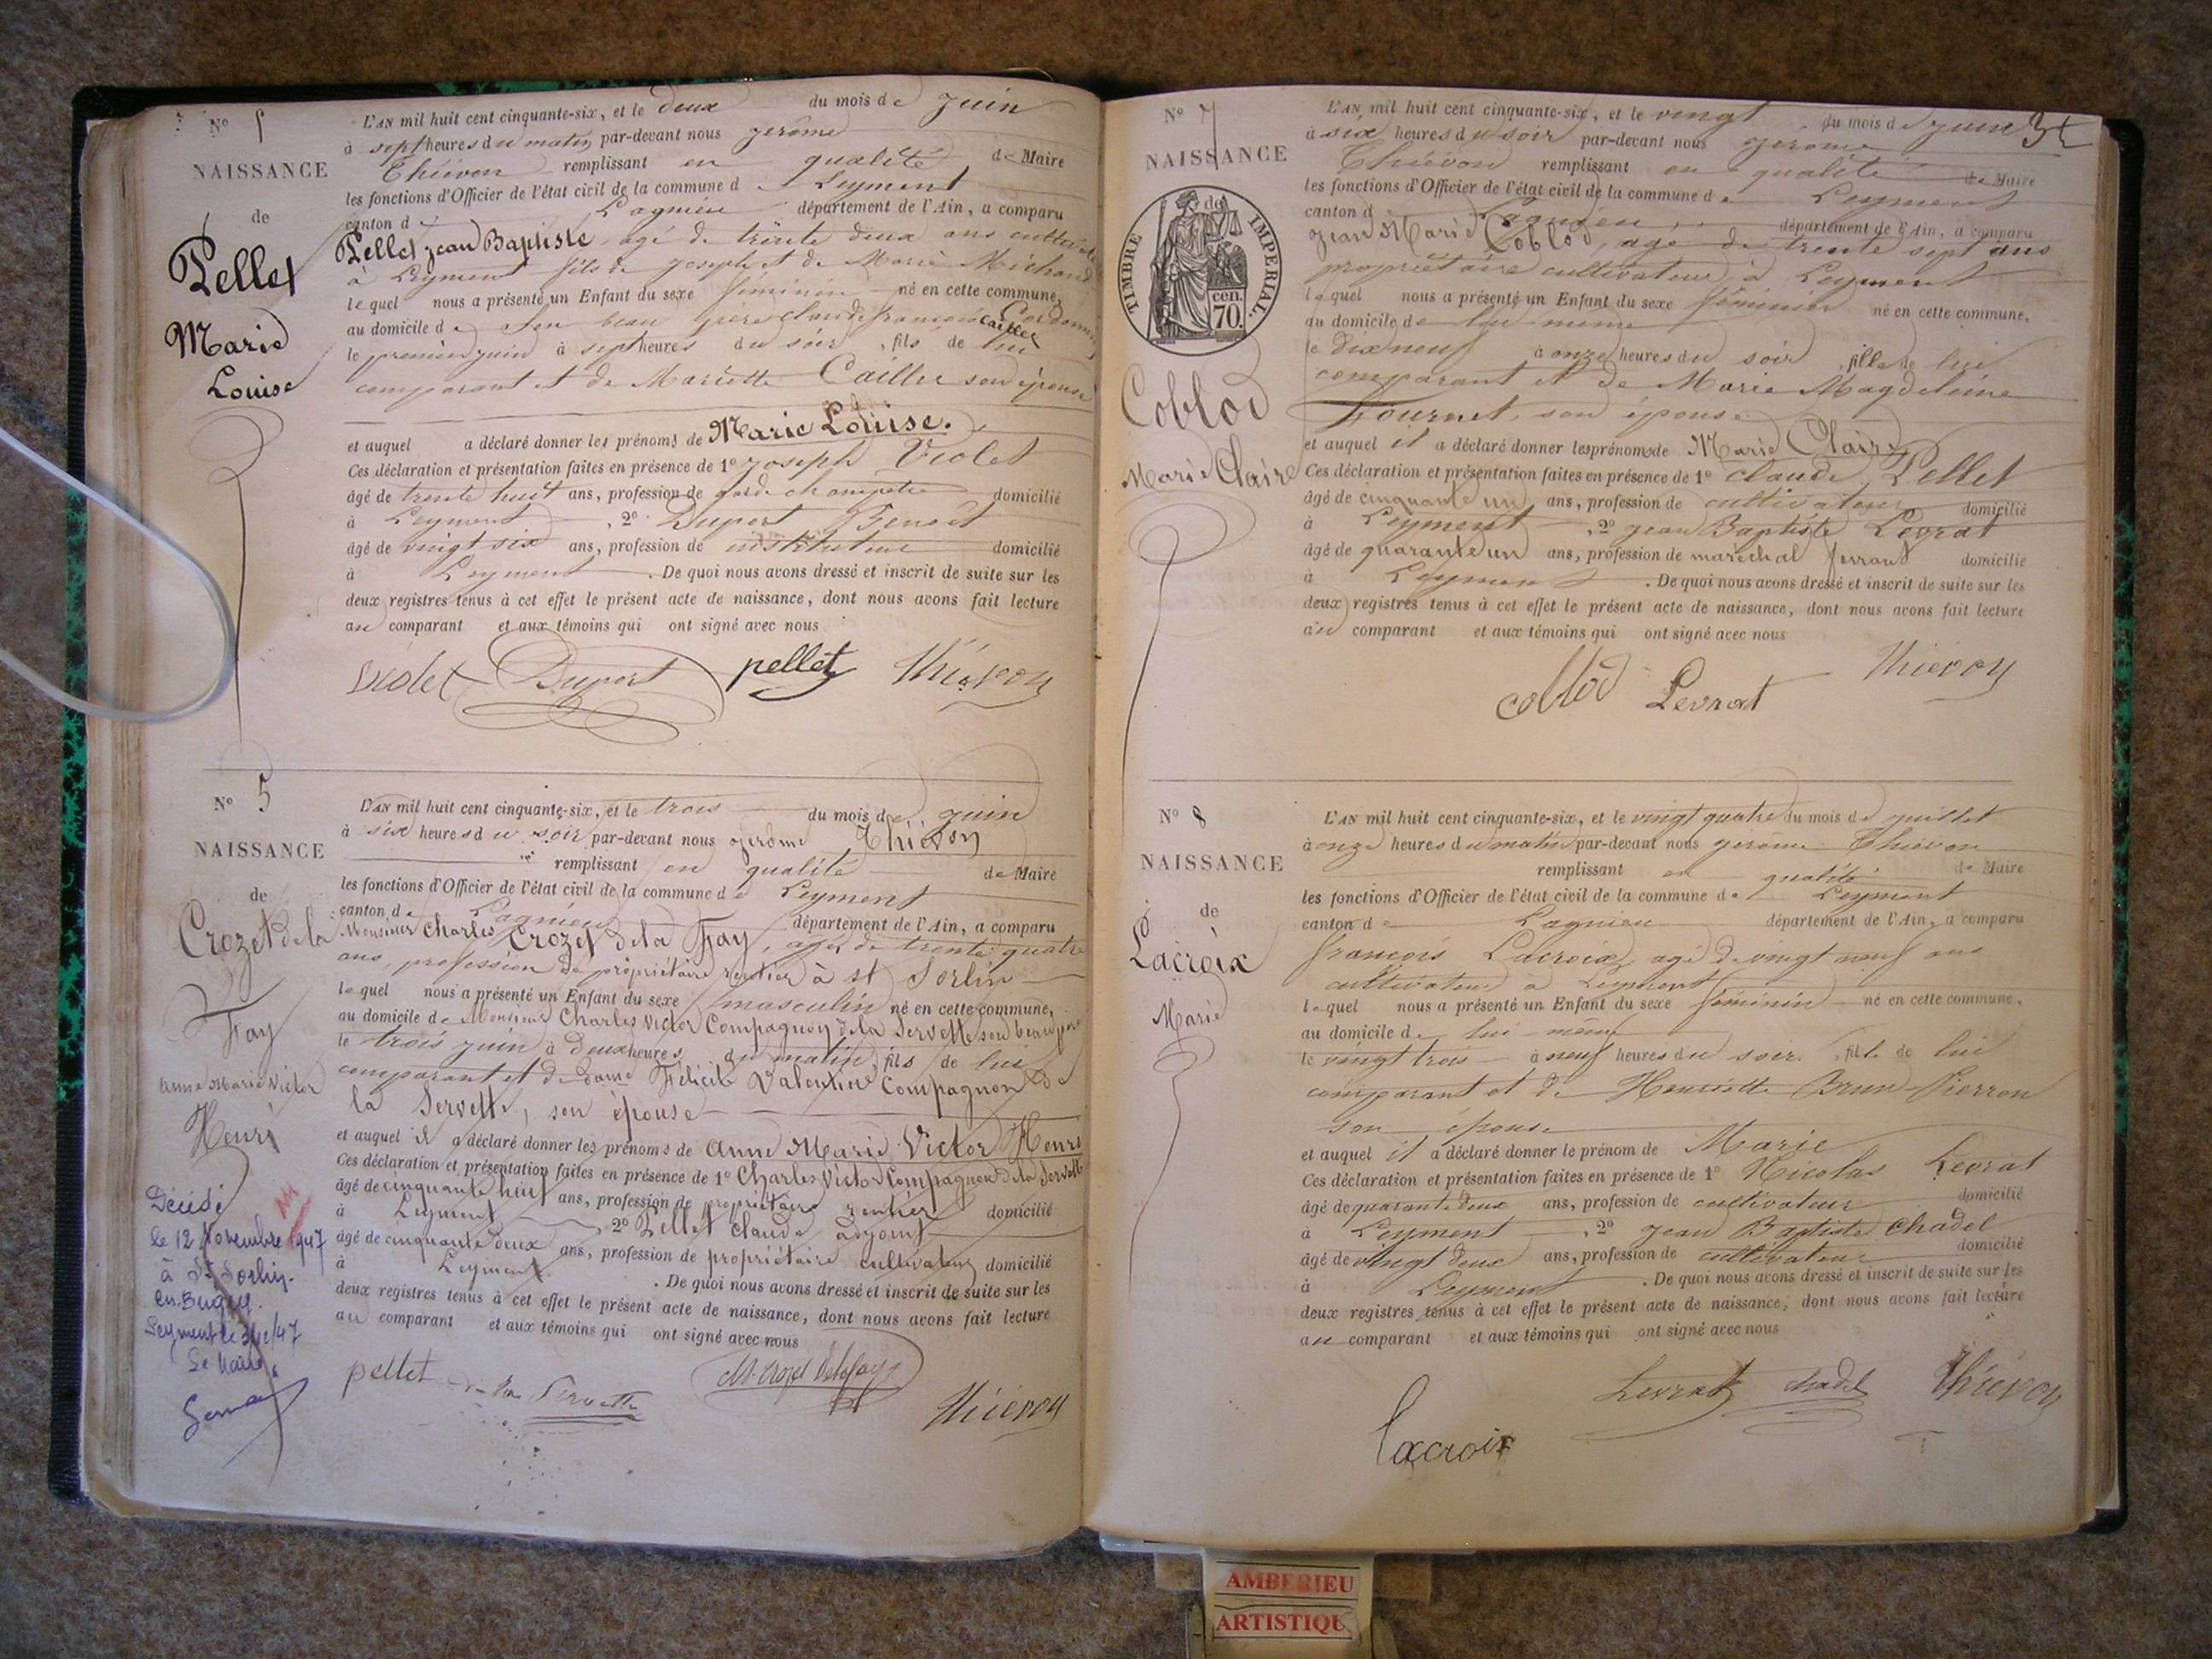 N° 5
NAISSANCE
de
Pellet
Marie
Louise
L'AN mil huit cent cinquante-six, et le deux du mois de juin
à sept heures du matin par-devant nous jerôme
Thiévon remplissant en qualité de Maire
les fonctions d'Officier de l'état civil de la commune de Leyment
canton de Lagnieu département de l'Ain, a comparu
Pellet jean Baptiste, agé de trente deux ans cultivateur
à Leyment fils de joseph et de Marie Michaud
lequel nous a présenté un Enfant du sexe féminin né en cette commune,
au domicile de son beau père claude françois Cailler Cordonnier
le premier juin à sept heures du soir, fils de lui
comparant et de Mariette Cailler son épouse
et auquel a déclaré donner les prénoms de Marie Louise.
Ces déclaration et présentation faites en présence de 1° joseph Violet
âgé de trente huit ans, profession de garde champetre domicilié
à Leyment, 2° Duport Benoît
âgé de vingt six ans, profession de instituteur domicilié
à Leyment. De quoi nous avons dressé et inscrit de suite sur les
deux registres tenus à cet effet le présent acte de naissance, dont nous avons fait lecture
au comparant et aux témoins qui ont signé avec nous
Violet Duport pellet Thiévon
N° 5
NAISSANCE
de
Crozet de la
Fay
Anne Marie Victor
Henri
Décédé
le 12 Novembre 1947
à St Sorlin-
en-Bugey.
Leyment le
Le Maire
L'AN mil huit cent cinquante-six, et le trois du mois de juin
à six heures du soir par-devant nous jerôme Thiévon
remplissant en qualité de Maire
les fonctions d'Officier de l'état civil de la commune de Leyment
canton de Lagnieu département de l'Ain, a comparu
Monsieur Charles Crozet de la Fay, agé de trente quatre
ans, profession de propriétaire rentier à st Sorlin
lequel nous a présenté un Enfant du sexe masculin né en cette commune,
au domicile de Monsieur Charles Victor Compagnon de la Servette son beau père
le trois juin à deux heures du matin, fils de lui
comparant et de dame Félicité Valentine Compagnon de
la Servette, son épouse
et auquel il a déclaré donner les prénoms de Anne Marie Victor Henri
Ces déclaration et présentation faites en présence de 1° Charles Victor Compagnon de la Servette
âgé de cinquante neuf ans, profession de propriétaire rentier domicilié
à Leyment, 2° Pellet Claude adjoint
âgé de cinquante deux ans, profession de propriétaire cultivateur domicilié
à Leyment. De quoi nous avons dressé et inscrit de suite sur les
deux registres tenus à cet effet le présent acte de naissance, dont nous avons fait lecture
au comparant et aux témoins qui ont signé avec nous
pellet de la Servette Crozet Delafay
Thiévon
35
N° 7
NAISSANCE
de
TIMBRE IMPERIAL.
cen.
70.
Coblod
Marie Claire
L'AN mil huit cent cinquante-six, et le vingt du mois de juin
à six heures du soir par-devant nous jerôme
Thiévon remplissant en qualité de Maire
les fonctions d'Officier de l'état civil de la commune de Leyment
canton d Lagnieu département de l'Ain, a comparu
jean Marie Coblod, agé de trente sept ans
propriétaire cultivateur à Leyment
lequel nous a présenté un Enfant du sexe féminin né en cette commune,
au domicile de lui-même
le dix neuf à onze heures du soir, fille de lui
comparant et de Marie Magdeleine
Fournet, son épouse
et auquel il a déclaré donner les prénoms de Marie Claire
Ces déclaration et présentation faites en présence de 1° Claude Pellet
âgé de cinquante un ans, profession de cultivateur domicilié
à Leyment, 2° jean Baptiste Levrat
âgé de quarante un ans, profession de maréchal ferrant domicilié
à Leyment. De quoi nous avons dressé et inscrit de suite sur les
deux registres tenus à cet effet le présent acte de naissance, dont nous avons fait lecture
au comparant et aux témoins qui ont signé avec nous
coblod Levrat Thiévon
N° 8
NAISSANCE
de
Lacroix
Marie
L'AN mil huit cent cinquante-six, et le vingt quatre du mois de juillet
à onze heures du matin par-devant nous jerôme Thiévon
remplissant en qualité de Maire
les fonctions d'Officier de l'état civil de la commune de Leyment
canton de Lagnieu département de l'Ain, a comparu
françois Lacroix, agé de vingt neuf ans
cultivateur à Leyment
lequel nous a présenté un Enfant du sexe féminin né en cette commune,
au domicile de lui-même
le vingt trois à neuf heures du soir, fille de lui
comparant et de Henriette Brun-Pierron
son épouse
et auquel il a déclaré donner le prénom de Marie
Ces déclaration et présentation faites en présence de 1° Nicolas Levrat
âgé de quarante deux ans, profession de cultivateur domicilié
à Leyment, 2° jean Baptiste Chadel
âgé de vingt deux ans, profession de cultivateur domicilié
à Leyment. De quoi nous avons dressé et inscrit de suite sur les
deux registres tenus à cet effet le présent acte de naissance, dont nous avons fait lecture
au comparant et aux témoins qui ont signé avec nous
Levrat chadel Thiévon
Lacroix
AMBERIEU
ARTISTIQU